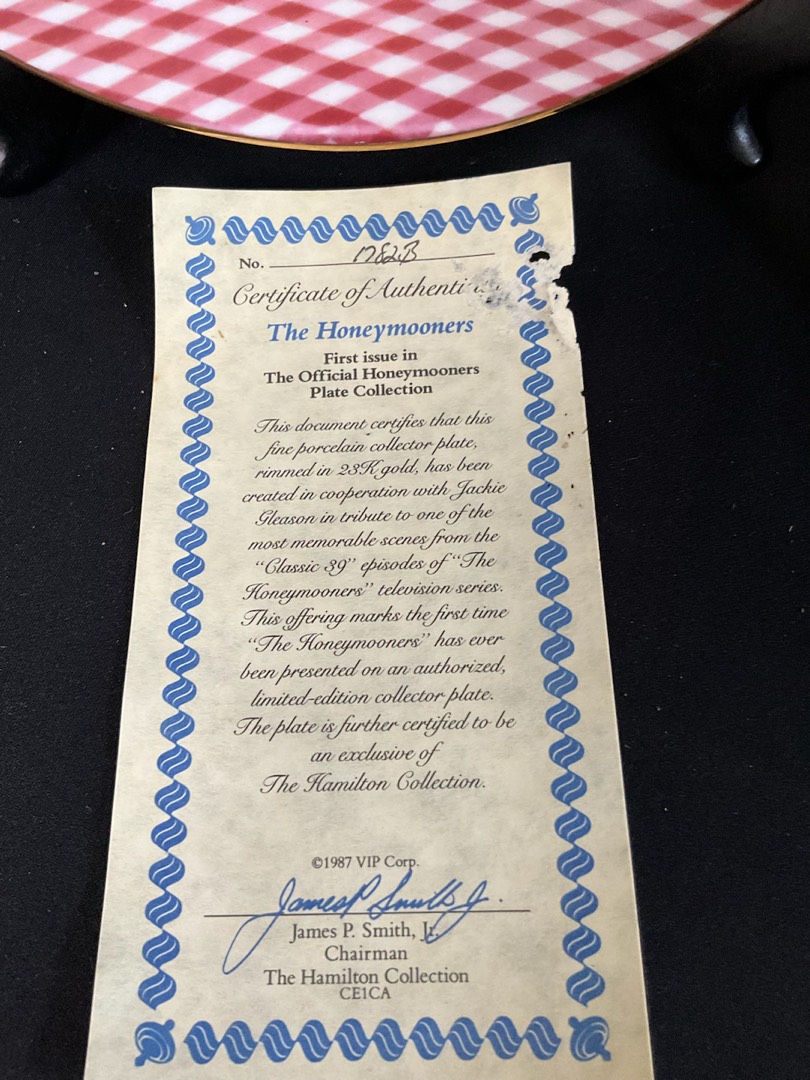 No. 1782B
Certificate of
The Honeymooners
First issue in
The Official Honeymooners
Plate Collection
This document certifies that this
fine porcelain collector plate,
rimmed in 23K gold, has been
created in cooperation with Jackie
Gleason in tribute to one of the
most memorable scenes from the
“Classic 39” episodes of “The
Honeymooners” television series.
This offering marks the first time
“The Honeymooners” has ever
been presented on an authorized,
limited-edition collector plate.
The plate is further certified to be
an exclusive of
The Hamilton Collection.
©1987 VIP Corp.
James P Smith Jr.
James P. Smith, Jr.
Chairman
The Hamilton Collection
CE1CA